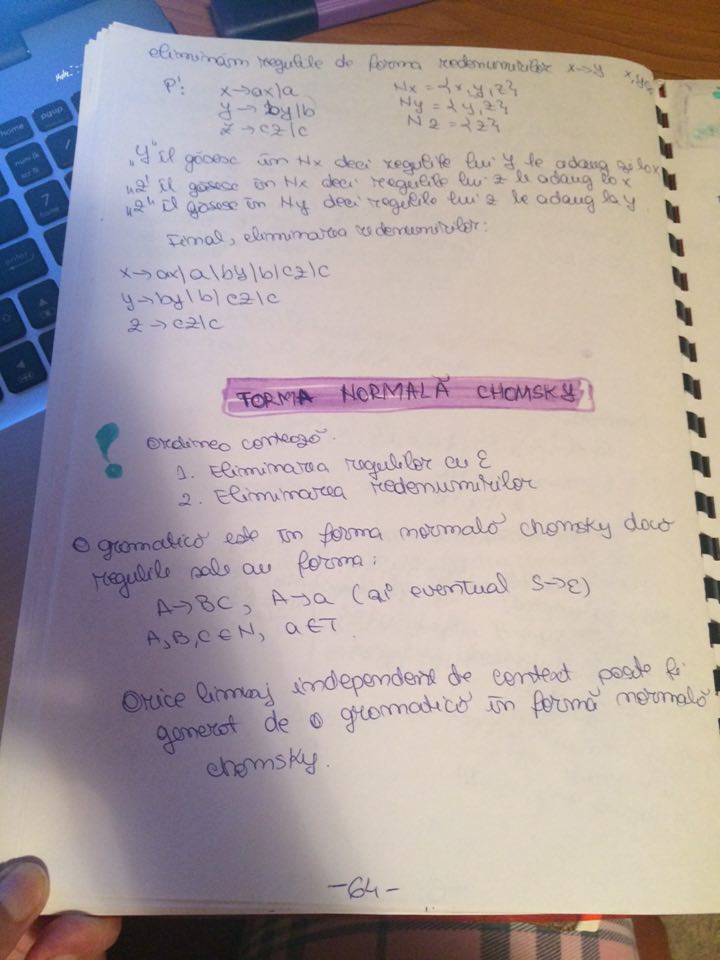 eliminăm regulile de forma redenumirilor x→y x,y∈
P': x→ax|a Nx = {x,y,z}
y→by|b Ny = {y,z}
z→cz|c Nz = {z}
„y" îl găsesc în Nx deci regulile lui y le adaug la x
„z" îl găsesc în Nx deci regulile lui z le adaug la x
„z" îl găsesc în Ny deci regulile lui z le adaug la y
Final, eliminarea redenumirilor:
x→ax|a|by|b|cz|c
y→by|b|cz|c
z→cz|c
FORMA NORMALĂ CHOMSKY
! Ordinea contează.
1. Eliminarea regulilor cu ε
2. Eliminarea redenumirilor
O gramatică este în forma normală chomsky dacă
regulile sale au forma:
A→BC, A→a (și eventual S→ε)
A,B,C∈N, a∈T.
Orice limbaj independent de context poate fi
generat de o gramatică în formă normală
chomsky.
-64-
home
pgup
num lk
7
home
enter